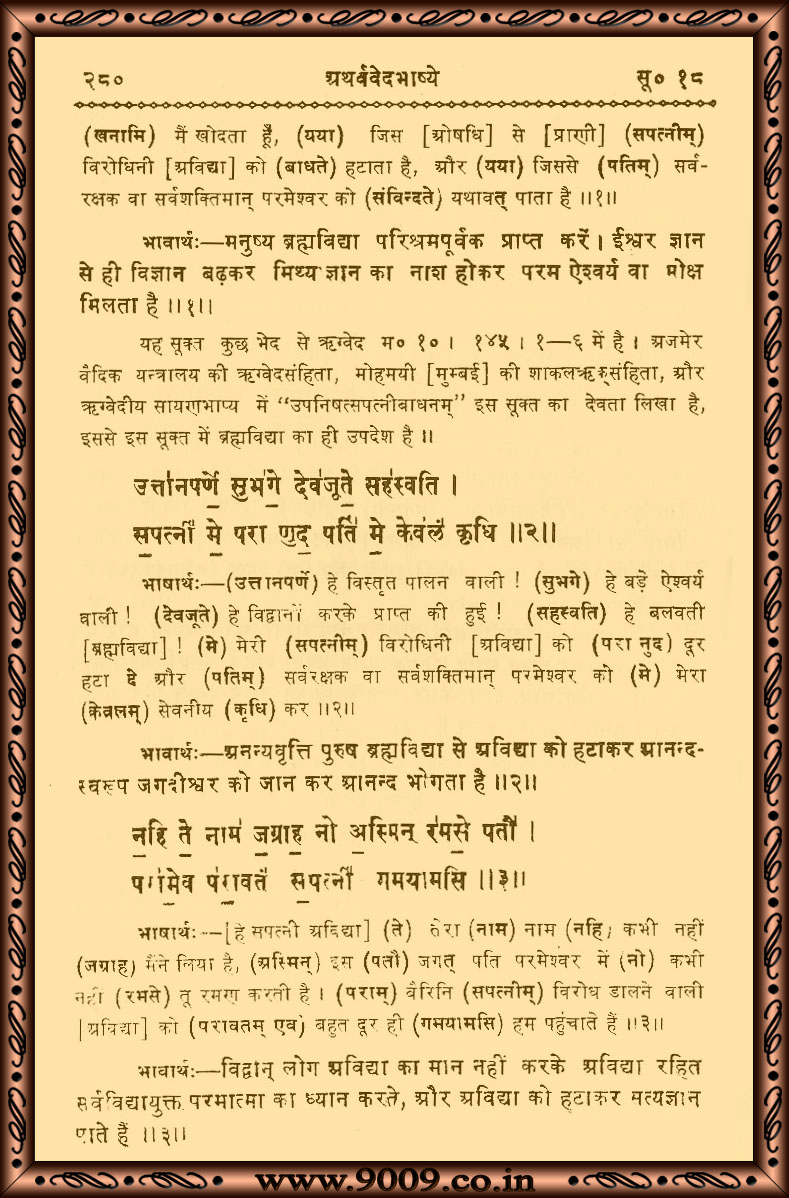 २८० अथर्ववेदभाष्ये सू० १८
(खनामि) मैं खोदता हूँ, (यया) जिस [ओषधि] से [प्राणी] (सपत्नीम्)
विरोधिनी [अविद्या] को (बाधते) हटाता है, और (यया) जिससे (पतिम्) सर्व-
रक्षक वा सर्वशक्तिमान् परमेश्वर को (संविन्दते) यथावत् पाता है ॥१॥
भावार्थः—मनुष्य ब्रह्मविद्या परिश्रमपूर्वक प्राप्त करें। ईश्वर ज्ञान
से ही विज्ञान बढ़कर मिथ्या ज्ञान का नाश होकर परम ऐश्वर्य वा मोक्ष
मिलता है ॥१॥
यह सूक्त कुछ भेद से ऋग्वेद म० १०। १४५। १—६ में है। अजमेर
वैदिक यन्त्रालय की ऋग्वेदसंहिता, मोहमयी [मुम्बई] की शाकलऋक्संहिता, और
ऋग्वेदीय सायणभाष्य में “उपनिषत्सपत्नीबाधनम्” इस सूक्त का देवता लिखा है,
इससे इस सूक्त में ब्रह्मविद्या का ही उपदेश है॥
उत्ता॑नपर्णे॒ सुभ॑गे॒ देव॑जूते॒ सह॑स्वति।
स॒पत्नीं॑ मे॒ परा॑ णुद॒ पतिं॑ मे॒ केव॑लं कृधि ॥२॥
भाषार्थः—(उत्तानपर्णे) हे विस्तृत पालन वाली! (सुभगे) हे बड़े ऐश्वर्य
वाली! (देवजूते) हे विद्वानों करके प्राप्त की हुई! (सहस्वति) हे बलवती
[ब्रह्मविद्या]! (मे) मेरी (सपत्नीम्) विरोधिनी [अविद्या] को (परा नुद) दूर
हटा दे और (पतिम्) सर्वरक्षक वा सर्वशक्तिमान् परमेश्वर को (मे) मेरा
(केवलम्) सेवनीय (कृधि) कर ॥२॥
भावार्थः—अनन्यवृत्ति पुरुष ब्रह्मविद्या से अविद्या को हटाकर आनन्द-
स्वरूप जगदीश्वर को जान कर आनन्द भोगता है ॥२॥
न॒हि ते॒ नाम॑ ज॒ग्राह॒ नो अ॒स्मिन् र॑मसे॒ पतौ॑।
परा॑मे॒व प॑रा॒वतं॑ स॒पत्नीं॑ गमयामसि ॥३॥
भाषार्थः—[हे सपत्नी अविद्या] (ते) तेरा (नाम) नाम (नहि) कभी नहीं
(जग्राह) मैंने लिया है, (अस्मिन्) इस (पतौ) जगत् पति परमेश्वर में (नो) कभी
नहीं (रमसे) तू रमण करती है। (पराम्) वैरिनि (सपत्नीम्) विरोध डालने वाली
[अविद्या] को (परावतम् एव) बहुत दूर ही (गमयामसि) हम पहुंचाते हैं ॥३॥
भावार्थः—विद्वान् लोग अविद्या का मान नहीं करके अविद्या रहित
सर्वविद्यायुक्त परमात्मा का ध्यान करते, और अविद्या को हटाकर सत्यज्ञान
पाते हैं ॥३॥
www.9009.co.in